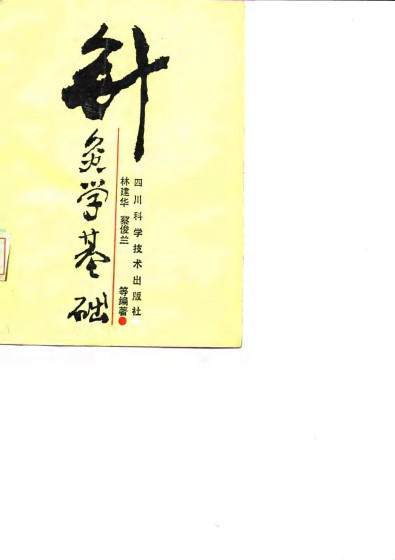 针灸学基础
林建华 蔡俊兰 等编著
四川科学技术出版社